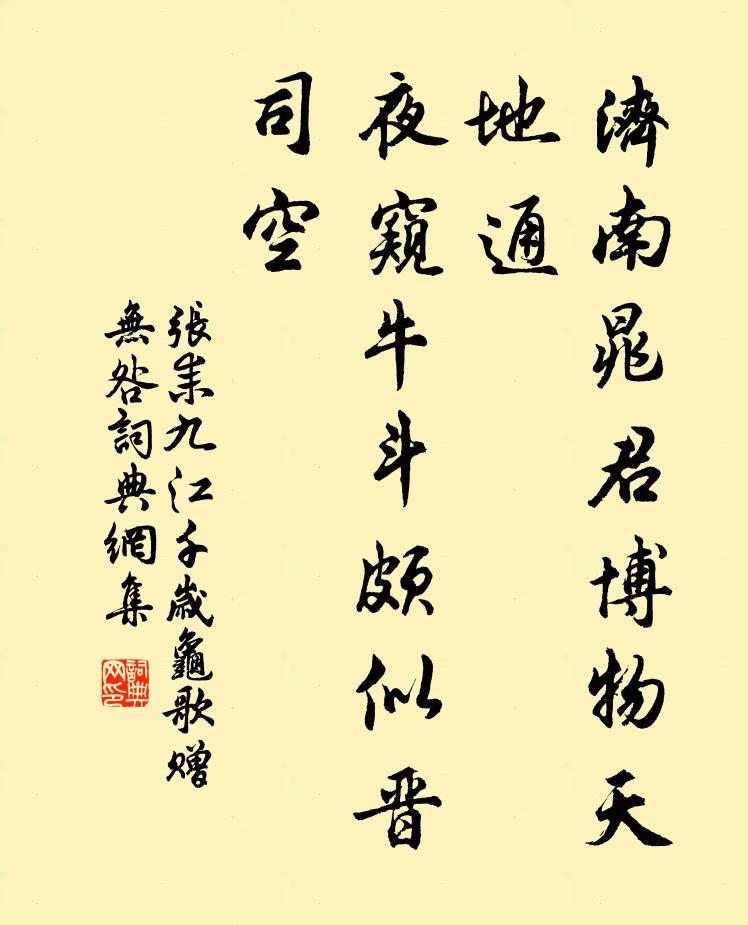 濟南晁君博物天
地通
夜窺牛斗頗似晋
司空
張耒九江千歲龜歌贈
無咎詞典網集
詞典
网印